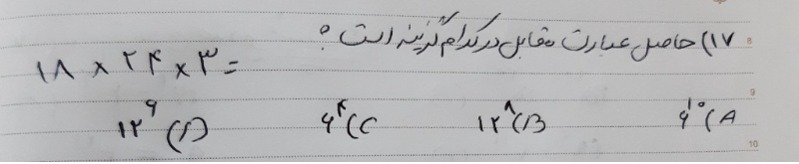 ۱۷) حاصل عبارت مقابل در کدام گزینه است ؟ 8
۱۸ × ۲۴ × ۳ =
9
A) ۶^۱۰ B) ۱۲^۸ C) ۶^۴ D) ۱۲^۹
10